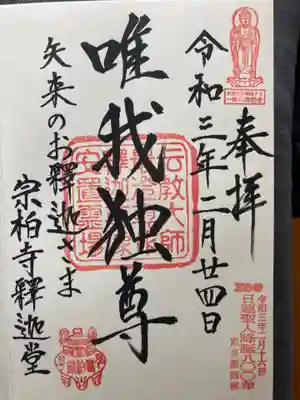 奉拝
令和三年二月廿四日
唯我独尊
矢来のお釋迦さま
宗柏寺釋迦堂
伝教大師
安置霊場
令和三年二月十六日
日蓮聖人降誕八〇〇年